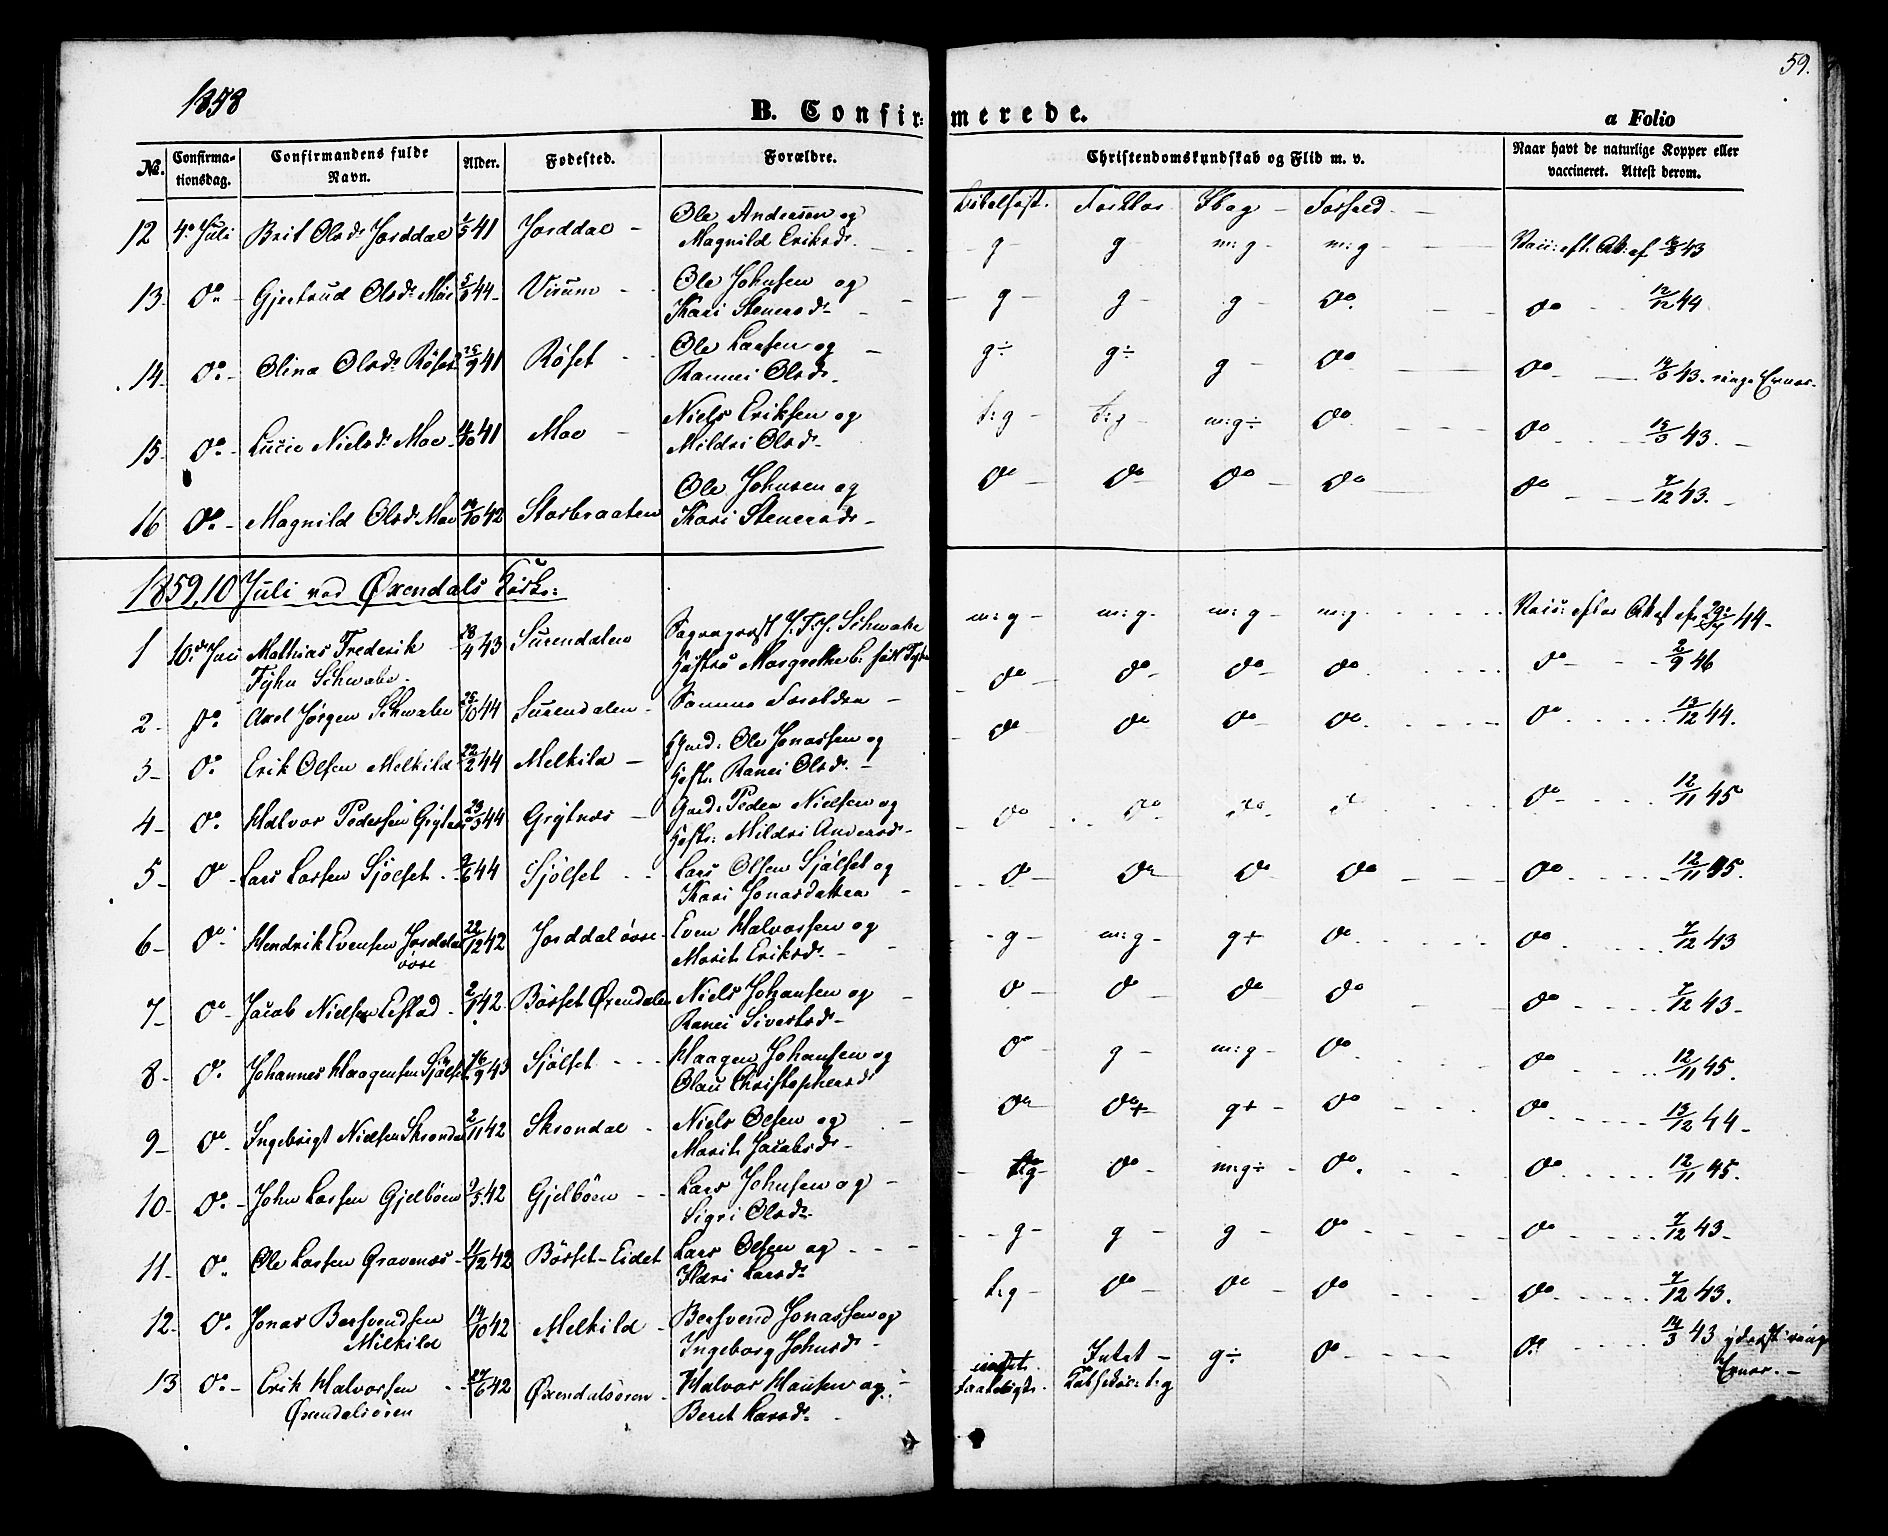 1858
59.
B. Confirmerede.
a Folio
No. Confirmationsdag. Confirmandens fulde Navn. Alder. Fødested. Forældre. Christendomskundskab og Flid m. v. Naar havt de naturlige Kopper eller vaccineret. Attest derom.
Forhold
12 4de Juli Brit Olsdr Jorddal 41 Jorddal Ole Andersen og Magnild Eriksdr. g g m:g m:g 43
13 do Gjertrud Olsdr Moe 44 Virum Ole Johnsen og Kari Stenersdr g g g do do 12/12 44
14 do Olina Olsdr Røset 41 Røset Ole Larsen og Rannei Olsdr. g÷ g÷ g do do 43.
15 do Lucie Nielsdr Moe 41 Moe Niels Eriksen og Mildri Olsdr t:g t:g m:g÷ do do 43.
16 do Magnild Olsdr Moe 42 Storbraaten Ole Johnsen og Kari Stenersdr do do do do do 7/12 43.
1859, 10 Juli ved Øxendals Kirke:
1 10de Mathias Frederik Fyhn Schwabe 28/4 43 Surendalen Schwabe m:g m:g m:g m:g 44
2 do Axel Jørgen Schwabe 26/10 44 Surendalen Samme Forældre do do do do do 46
3 do Erik Olsen Melkild 22/2 44 Melkild Ole Jonassen og Ranei Olsdr. do do do do do 13/12 44.
4 do Halvor Pedersen 44 Grytnes Peder Nielsen og Mildri Andersdr. do do do do do 12/11 45
5 do Lars Larsen Sjølset 44 Sjølset Lars Olsen Sjølset og Kari Jonasdatter do do do do do 12/11 45.
6 do Hendrik Evensen Jorddal øvre 22/12 42 Jorddal øvre Even Halvorsen og Marit Eriksdr. g m:g g+ do do 7/12 43
7 do Jacob Nielsen 42 Børset Øxendalen Niels Johansen og Ranei Sivertsdr do do do do do 7/12 43
8 do Johannes Haagensen Sjølset 16/9 43 Sjølset Haagen Johansen og Olau Christophersdr do g m:g do do 12/11 45.
9 do Ingebrigt Nielsen Skrondal 2/11 42 Skrondal Niels Olsen og Marit Jacobsdr. do do+ g+ do do 13/12 44
10 do John Larsen Gjelbøen 42 Gjelbøen Lars Johnsen og Sigri Olsdr do m:g÷ do do 12/11 45.
11 do Ole Larsen Gravenæs 42 Børset-Eidet Lars Olsen og Kari Larsdr g g g do do 7/12 43
12 do Jonas Bersvendsen Melkild 14/10 42 Melkild Bersvend Jonassen og Ingeborg Johnsdr t:g do do do do 7/12 43.
13 do Erik Halvorsen Øxendalsøren 42 Øxendalsøren Halvor Hansen og Beret Larsdr Intet g÷ do do 14/3 43